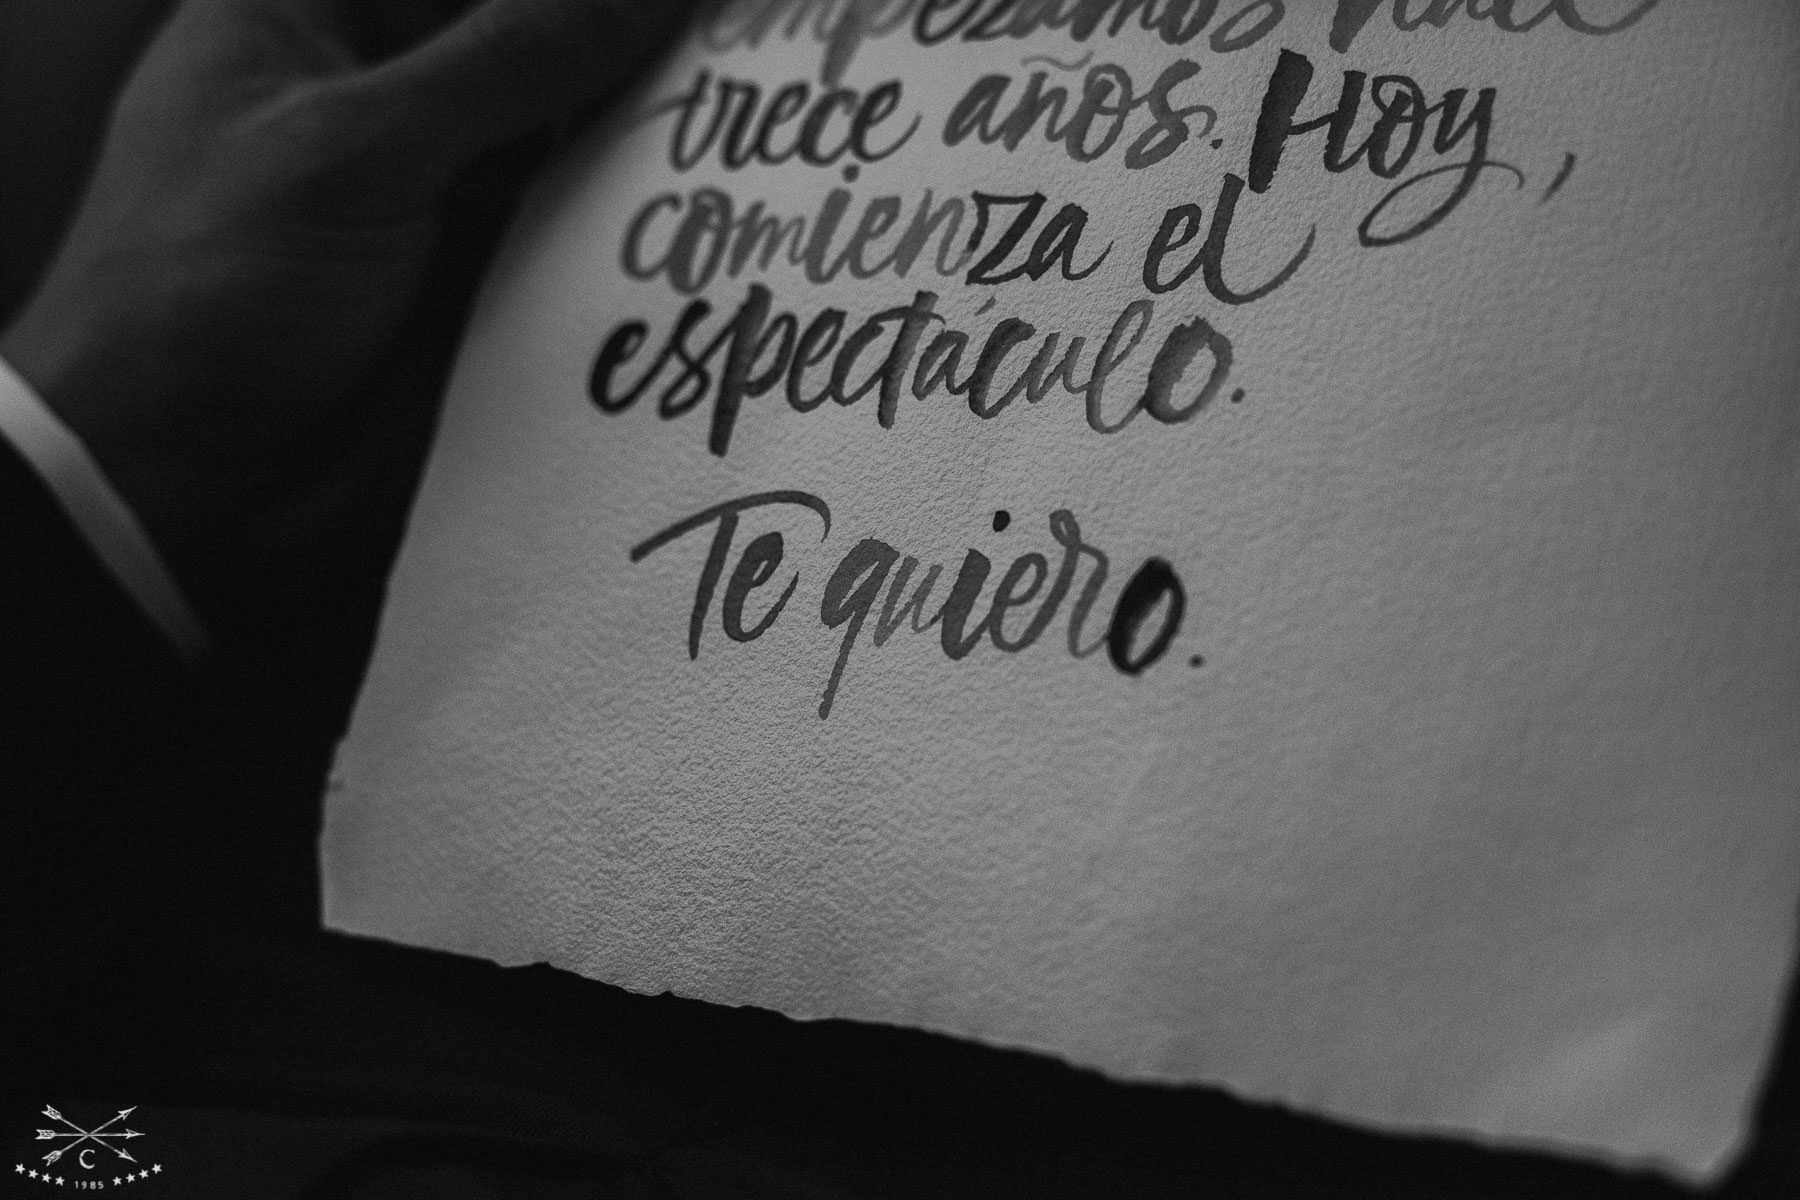 empezamos hace
trece años. Hoy,
comienza el
espectáculo.
Te quiero.
C
1985